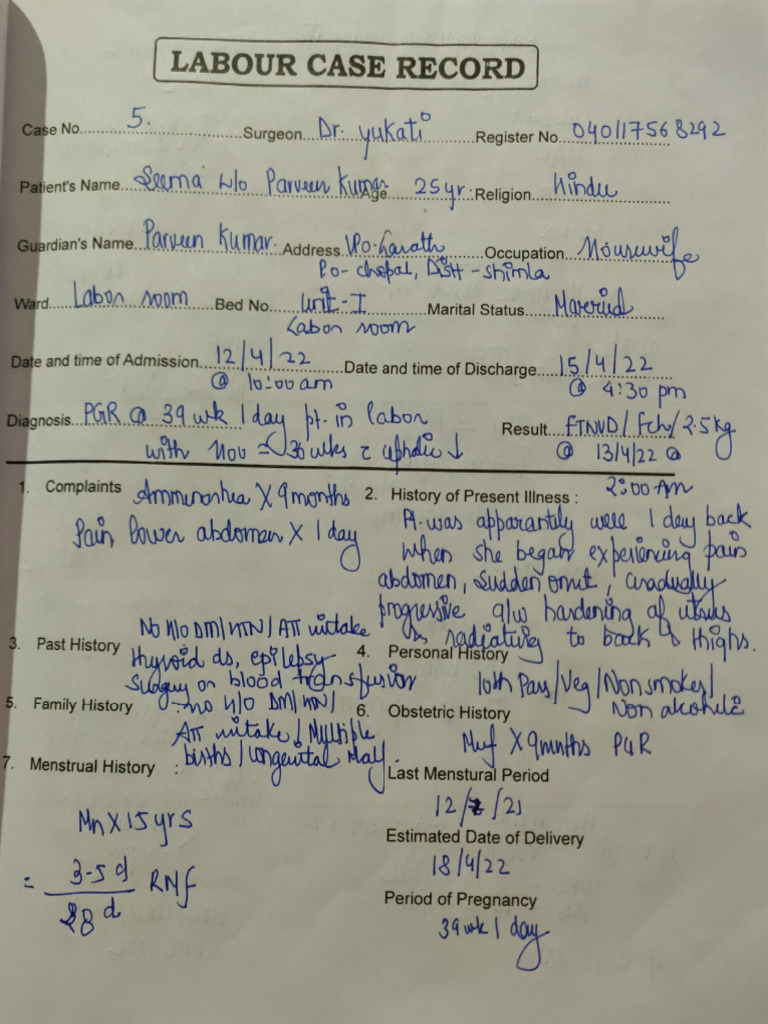 LABOUR CASE RECORD
Case No. 5. Surgeon Dr. yukati Register No 040117568292
Patient's Name Seema w/o Parveen Kumar Age 25 yr. Religion hindu
Guardian's Name Parveen Kumar. Address VPO- Occupation Housewife
Po- chopal, Distt - shimla
Ward Labor room Bed No. Unit - I Marital Status Married
Labor room
Date and time of Admission 12/4/22 Date and time of Discharge 15/4/22
@ 10:00 am @ 4:30 pm
Diagnosis PGR @ 39 wk 1 day pt. in labor Result FTNVD / fch / 2.5kg
with 36 wks c ↓ @ 13/4/22 @
2:00 AM
1. Complaints Ammenorrhea X 9 months 2. History of Present Illness :
Pain lower abdomen X 1 day
Pt. was apparantely well 1 day back
when she began experiencing pain
abdomen, sudden onset, gradually
progressive a/w hardening of uterus
& radiating to back & thighs.
3. Past History No H/O DM/HTN/ATT intake
thyroid ds, epilepsy
surgery or blood transfusion
4. Personal History
10th Pass/Veg/Non smoker/
Non alcoholic
5. Family History : no H/O DM/HTN/
ATT intake / Multiple
births/Congenital Malf.
6. Obstetric History
Mf X 9mnths PGR
7. Menstrual History :
Mn X 15 yrs
= 3-5 d RNf
28 d
Last Menstural Period
12/7/21
Estimated Date of Delivery
18/4/22
Period of Pregnancy
39 wk 1 day